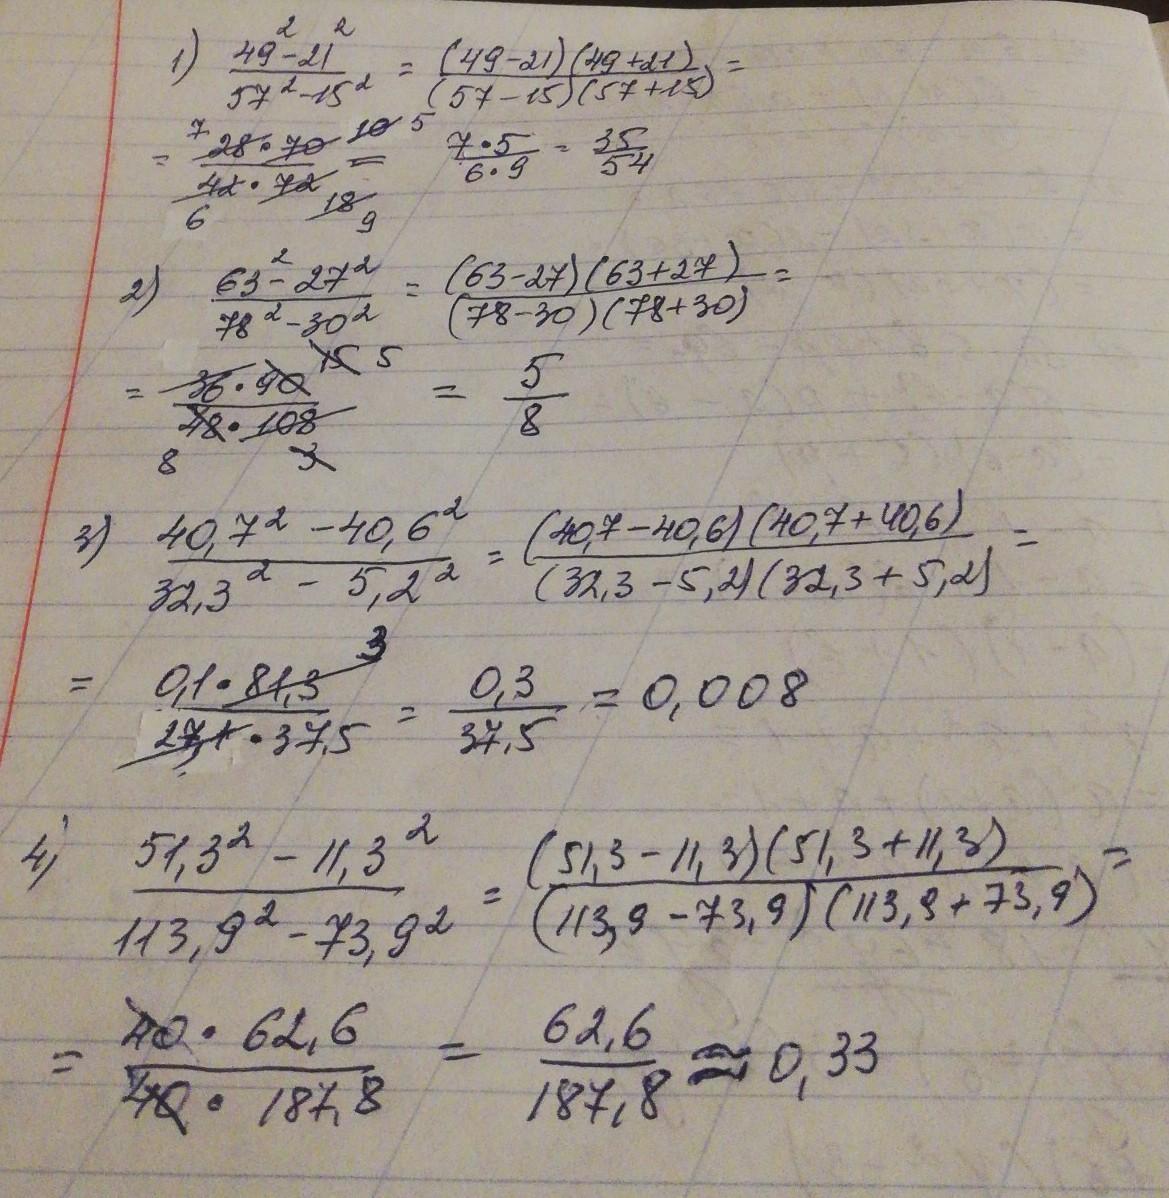 1) (49² - 21²)/(57² - 15²) = ((49-21)(49+21))/((57-15)(57+15)) =
= (28·70)/(42·72) = (7·5)/(6·9) = 35/54
7 10 5
6 18 9
2) (63² - 27²)/(78² - 30²) = ((63-27)(63+27))/((78-30)(78+30)) =
= (36·90)/(48·108) = 5/8
15 5
8 3
3) (40,7² - 40,6²)/(32,3² - 5,2²) = ((40,7-40,6)(40,7+40,6))/((32,3-5,2)(32,3+5,2)) =
= (0,1·81,3)/(27,1·37,5) = 0,3/37,5 = 0,008
3
4) (51,3² - 11,3²)/(113,9² - 73,9²) = ((51,3-11,3)(51,3+11,3))/((113,9-73,9)(113,9+73,9)) =
= (40·62,6)/(40·187,8) = 62,6/187,8 ≈ 0,33